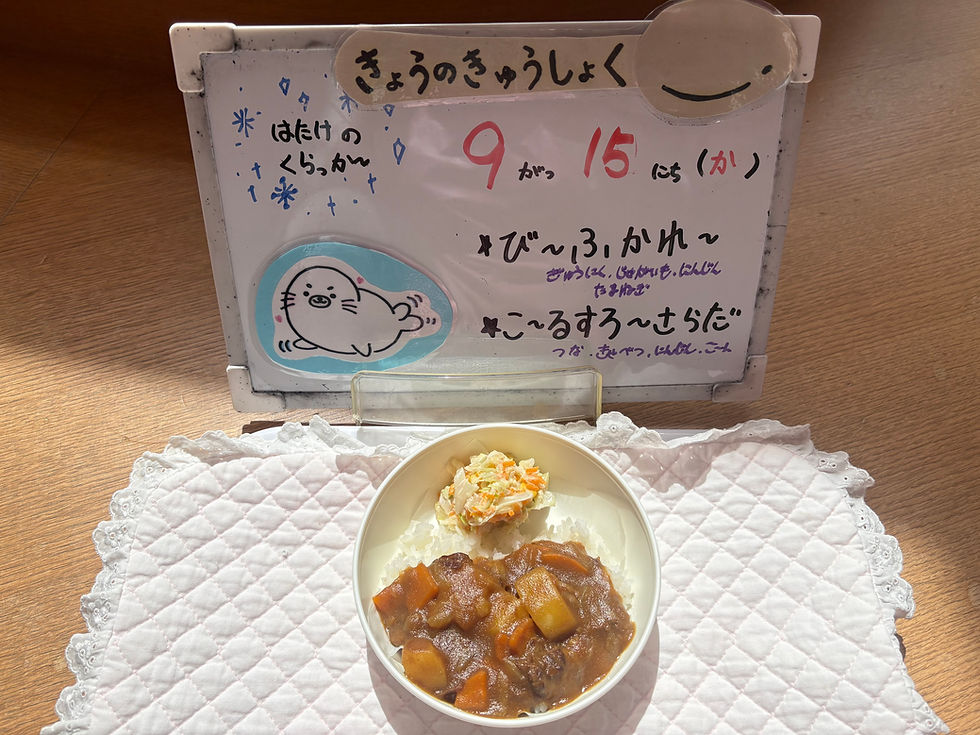 きょうのきゅうしょく
はたけの
くらっか〜
9がつ 15にち(か)
★び〜ふかれ〜
ぎゅうにく、じゃがいも、にんじん
たまねぎ
★こ〜るすろ〜さらだ
つな、きゃべつ、にんじん、こーん